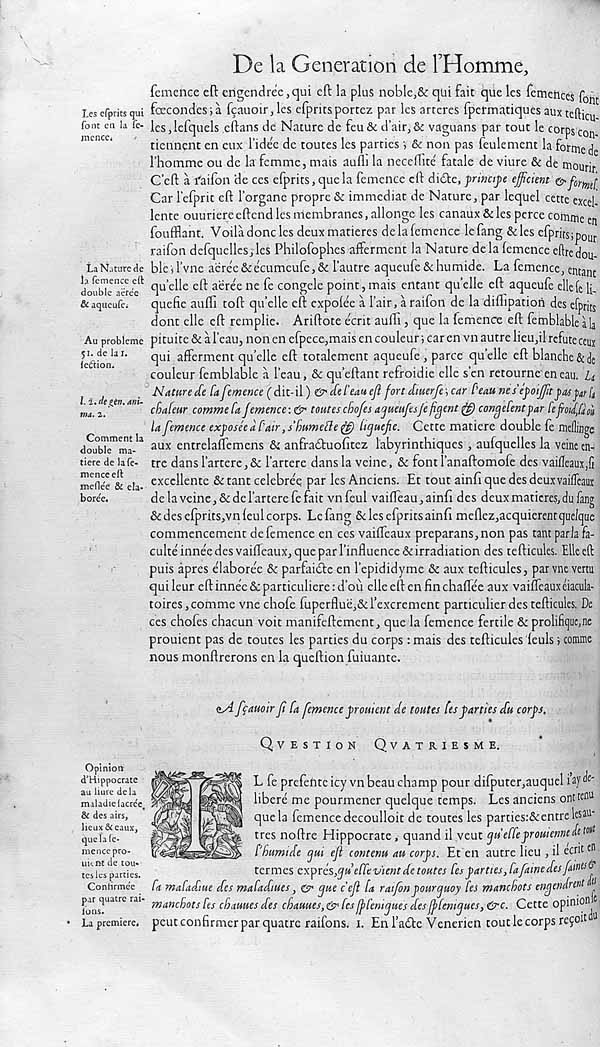 De la Generation de l'Homme,
ſemence eſt engendrée, qui eſt la plus noble, & qui fait que les ſemences ſont
fœcondes; à ſçauoir, les eſprits portez par les arteres ſpermatiques aux teſticu-
les, leſquels eſtans de Nature de feu & d'air, & vaguans par tout le corps con-
tiennent en eux l'idée de toutes les parties; & non pas ſeulement la forme de
l'homme ou de la femme, mais auſſi la neceſſité fatale de viure & de mourir.
C'eſt à raiſon de ces eſprits, que la ſemence eſt dicte, principe efficient & formel.
Car l'eſprit eſt l'organe propre & immediat de Nature, par lequel cette excel-
lente ouuriere eſtend les membranes, allonge les canaux & les perce comme en
ſoufflant. Voilà donc les deux matieres de la ſemence le ſang & les eſprits; pour
raiſon deſquelles, les Philoſophes afferment la Nature de la ſemence eſtre dou-
ble; l'vne aërée & écumeuſe, & l'autre aqueuſe & humide. La ſemence, entant
qu'elle eſt aërée ne ſe congele point, mais entant qu'elle eſt aqueuſe elle ſe li-
quefie auſſi toſt qu'elle eſt expoſée à l'air, à raiſon de la diſſipation des eſprits
dont elle eſt remplie. Ariſtote écrit auſſi, que la ſemence eſt ſemblable à la
pituite & à l'eau, non en eſpece, mais en couleur; car en vn autre lieu, il refute ceux
qui afferment qu'elle eſt totalement aqueuſe, parce qu'elle eſt blanche & de
couleur ſemblable à l'eau, & qu'eſtant refroidie elle s'en retourne en eau. La
Nature de la ſemence (dit-il) & de l'eau eſt fort diuerſe; car l'eau ne s'époiſſit pas par la
chaleur comme la ſemence: & toutes choſes aqueuſes ſe figent & congelent par le froid, là où
la ſemence expoſée à l'air, s'humecte & liquefie. Cette matiere double ſe meſlinge
aux entrelaſſemens & anfractuoſitez labyrinthiques, auſquelles la veine en-
tre dans l'artere, & l'artere dans la veine, & font l'anaſtomoſe des vaiſſeaux, ſi
excellente & tant celebrée par les Anciens. Et tout ainſi que des deux vaiſſeaux
de la veine, & de l'artere ſe fait vn ſeul vaiſſeau, ainſi des deux matieres, du ſang
& des eſprits, vn ſeul corps. Le ſang & les eſprits ainſi meſlez, acquierent quelque
commencement de ſemence en ces vaiſſeaux preparans, non pas tant par la fa-
culté innée des vaiſſeaux, que par l'influence & irradiation des teſticules. Elle eſt
puis apres élaborée & parfaicte en l'epididyme & aux teſticules, par vne vertu
qui leur eſt innée & particuliere: d'où elle eſt en fin chaſſée aux vaiſſeaux éiacula-
toires, comme vne choſe ſuperfluë, & l'excrement particulier des teſticules. De
ces choſes chacun voit manifeſtement, que la ſemence fertile & prolifique, ne
prouient pas de toutes les parties du corps: mais des teſticules ſeuls; comme
nous monſtrerons en la queſtion ſuiuante.
Les eſprits qui
ſont en la ſe-
mence.
La Nature de
la ſemence eſt
double aërée
& aqueuſe.
Au probleme
51. de la 1.
ſection.
l. 2. de gen. ani-
ma. 2.
Comment la
double ma-
tiere de la ſe-
mence eſt
meſlée & ela-
borée.
A ſçauoir ſi la ſemence prouient de toutes les parties du corps.
QVESTION QVATRIESME.
IL ſe preſente icy vn beau champ pour diſputer, auquel i'ay de-
liberé me pourmener quelque temps. Les anciens ont tenu
que la ſemence decoulloit de toutes les parties: & entre les au-
tres noſtre Hippocrate, quand il veut qu'elle prouienne de tout
l'humide qui eſt contenu au corps. Et en autre lieu, il écrit en
termes exprés, qu'elle vient de toutes les parties, la ſaine des ſaines &
la maladiue des maladiues, & que c'eſt la raiſon pourquoy les manchots engendrent des
manchots les chauues des chauues, & les ſpleniques des ſpleniques, &c. Cette opinion ſe
peut confirmer par quatre raiſons. 1. En l'acte Venerien tout le corps reçoit du
Opinion
d'Hippocrate
au liure de la
maladie ſacrée,
& des airs,
lieux & eaux,
que la ſe-
mence pro-
uient de tou-
tes les parties.
Confirmée
par quatre rai-
ſons.
La premiere.